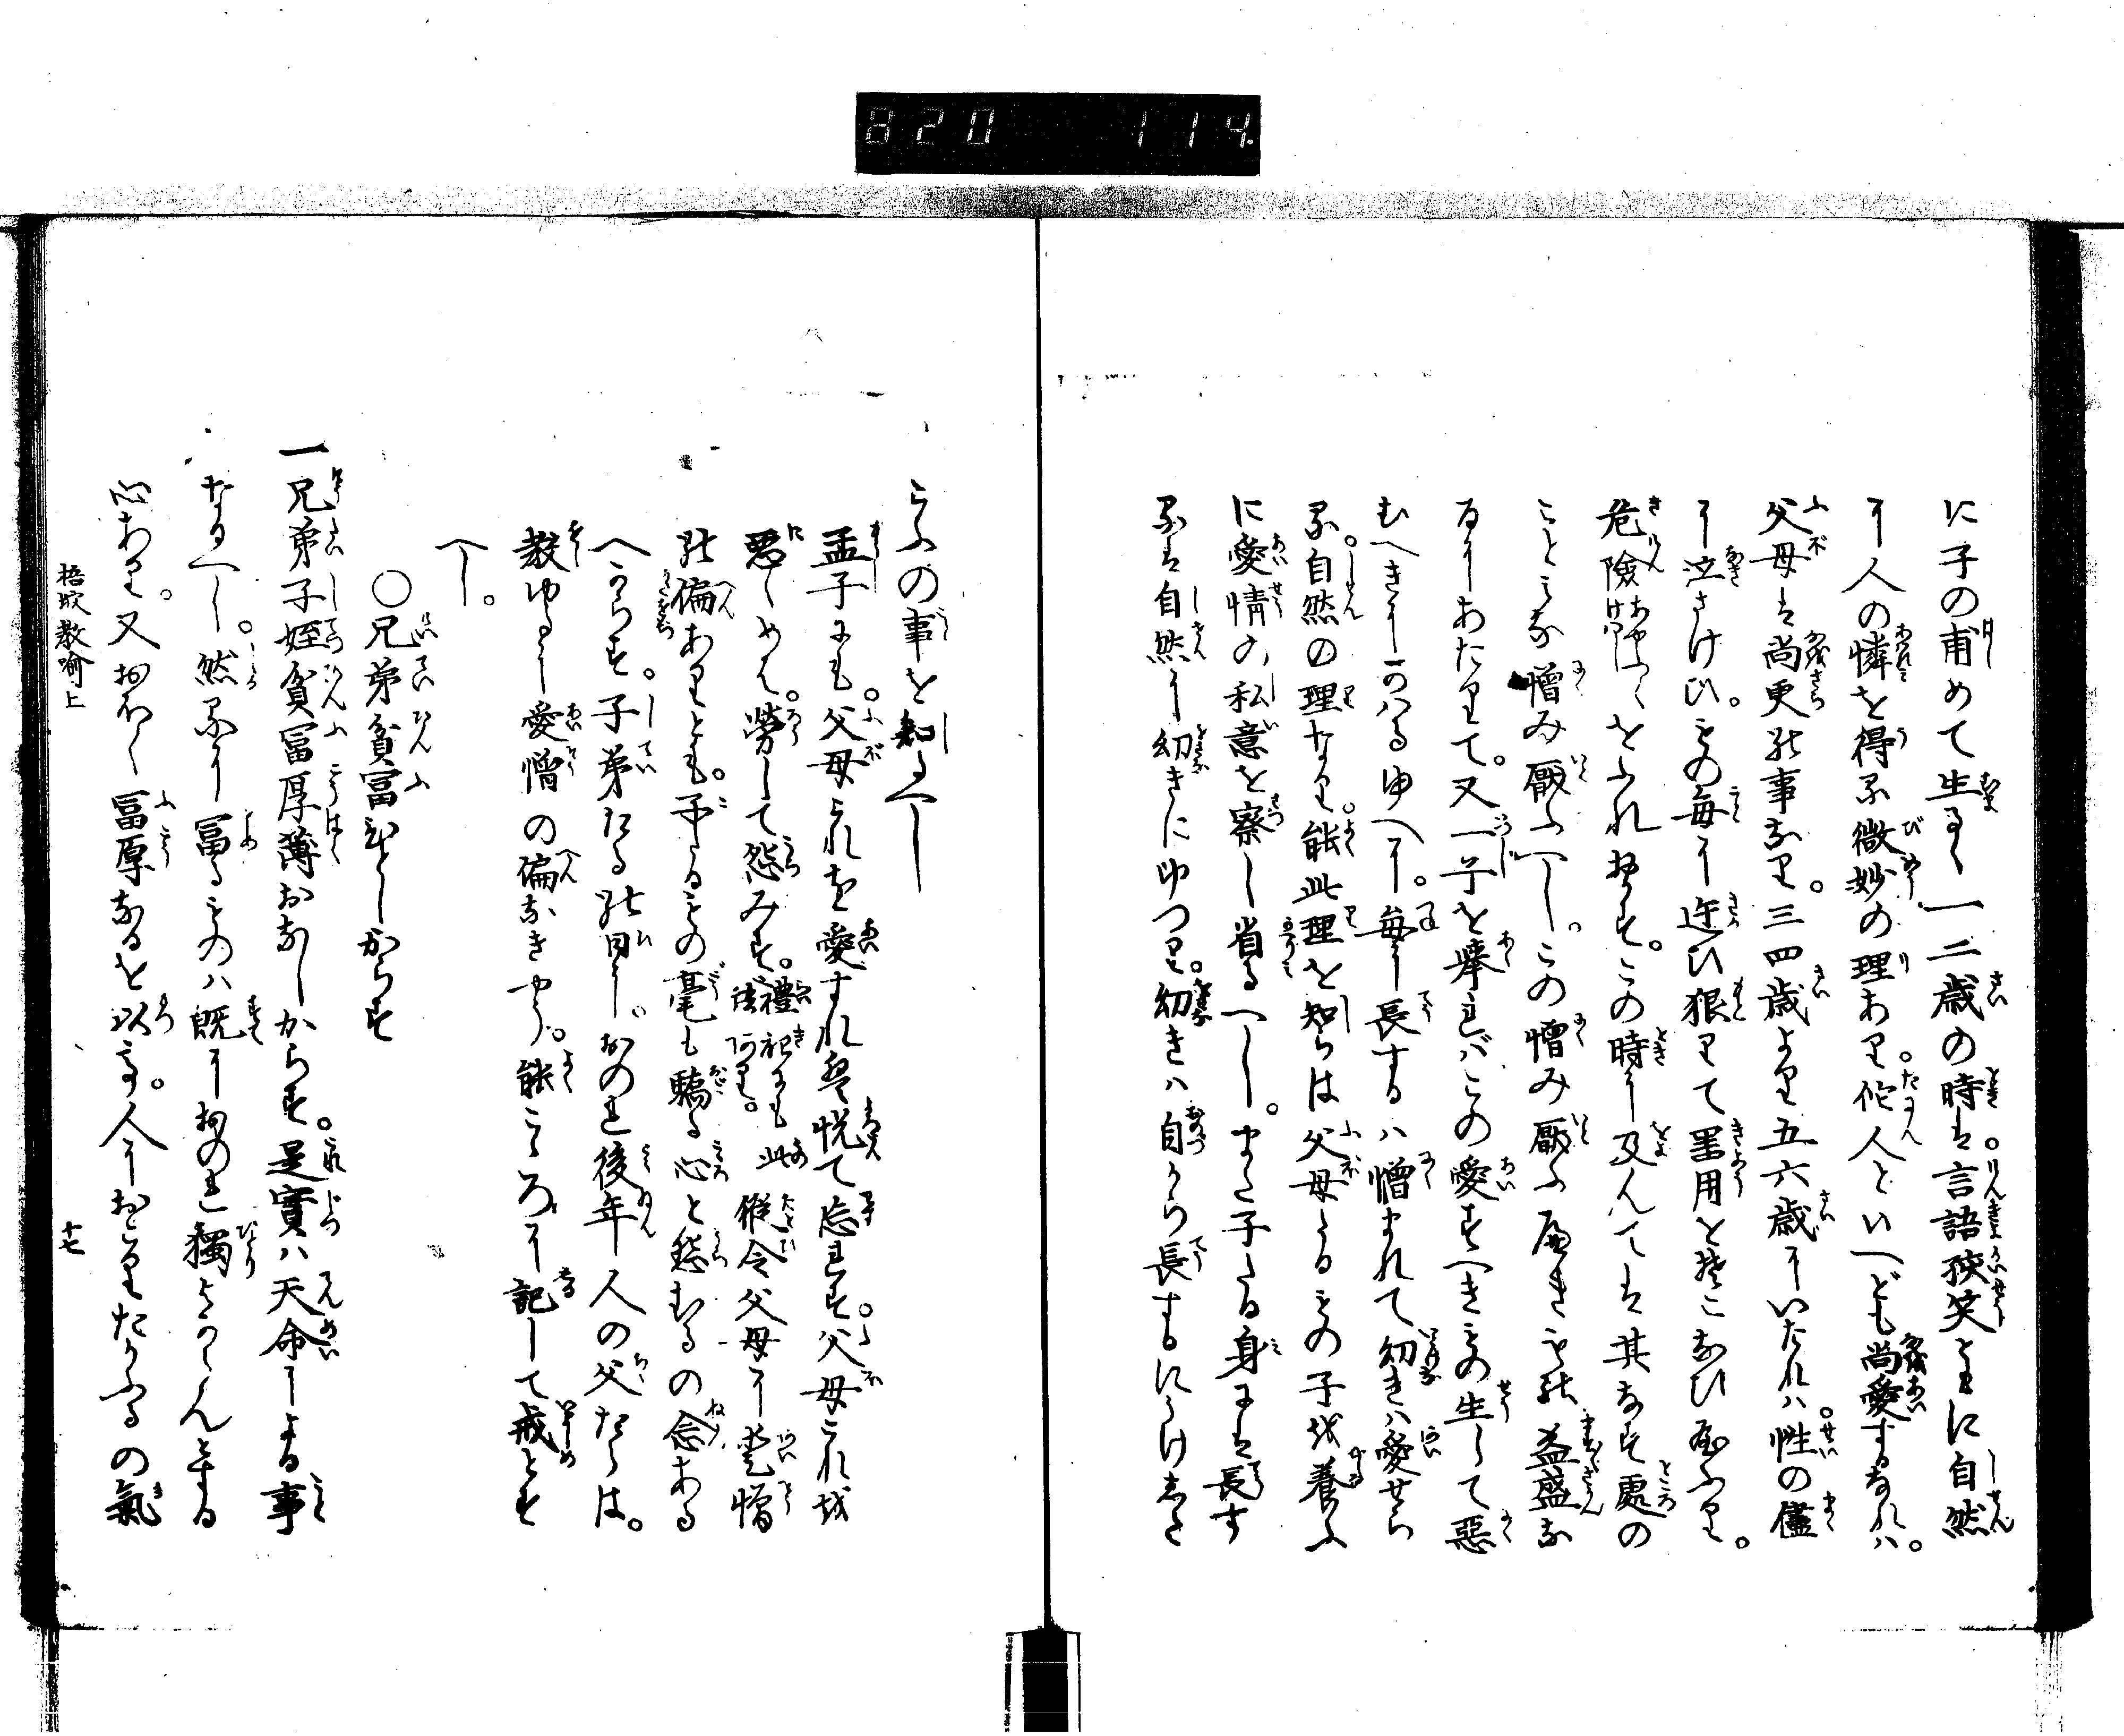 820 114.
に子の甫めて生るゝ一二歳の時は。言語狹笑ともに自然
に人の憐を得る微妙の理あり。佗人といへども尚愛するなれハ。
父母は尚更の事なり。三四歳より五六歳にいたれハ。性の儘
に泣さけび。もの毎に迕ひ狠りて
危險をおそれず。この時に及んては其なす處の
ことみな憎み厭ふべし。この憎み厭ふべきもの益盛な
るにあたりて。又一子を擧れバこの愛すべきもの生して惡
むへきにかハるゆへに。毎に長するハ憎まれて幼きハ愛せら
る。自然の理なり。能此理を知らは父母たるもの子を養ふ
に愛情の私意を察し省るへし。また子たる身にも長す
るは自然に幼きにゆつり。幼きハ自から長するにうけしたご
らふの事を知るへし
孟子にも。父母これを愛すれは悦て忘れず。父母これを
惡しめは。勞して怨みず。禮記にも此語あり。縱令父母に愛憎
の偏ありとも。子たるもの毫も驕る心と怨むるの念ある
へからず。子弟たるの日に。おのれ後年人の父たらは。
教ゆるに愛憎の偏なきやう。能こゝろに記して戒とす
へし。
○兄弟貧冨ひとしからす
一兄弟子姪貧冨厚薄おなしからす。是實ハ天命による事
なるへし。然るに冨るものハ既におのれ獨よからんとする
心あり。又おほく冨厚なるを以て。人におごりたかふるの氣
捂㪅教喻上
十七